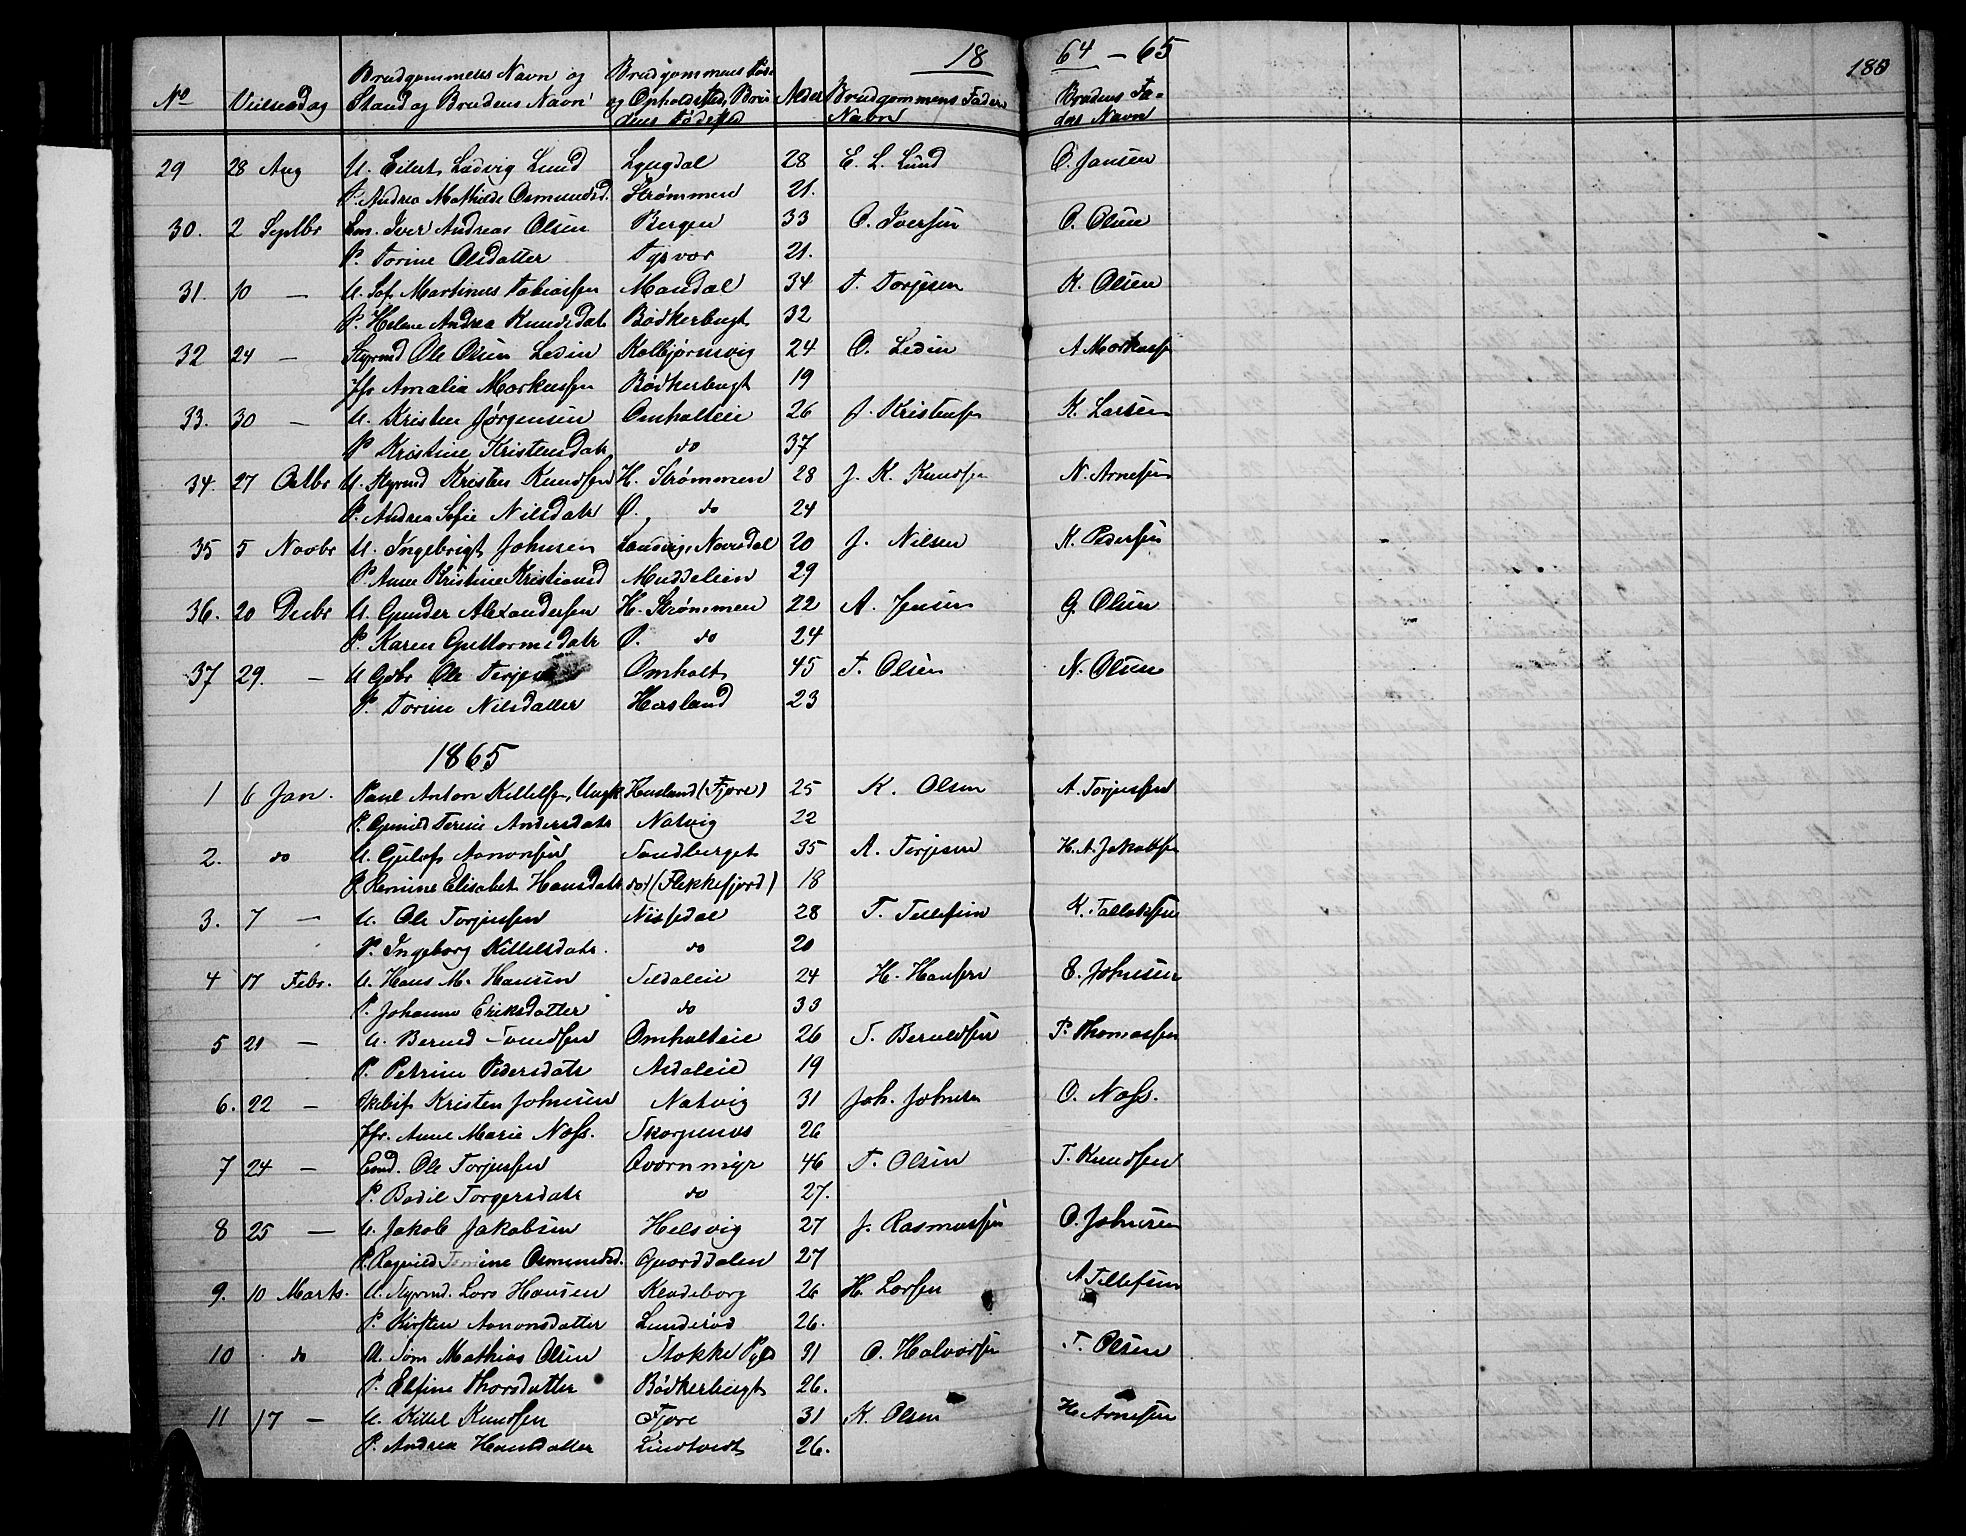 18 64 – 65
188
No Vielsesdag Brudgommens Navn og Stand og Brudens Navn Brudgommens Føde og Opholdsted, Brudens Fødested Alder Brudgommens Faders Navn Brudens Faders Navn
29 28 Aug U. Eilert Ludvig Lund Lyngdal 28 E. L. Lund O. Jansen
P. Andrea Mathilde Osmundsd. Strømmen 21.
30. 2 Septbr Em. Iver Andreas Olsen Bergen 33 O. Iversen O. Olsen
P. Torine Olsdatter Tysvær 21.
31. 10 — U. Sof. Martinus Tobiassen Mandal 34 T. Torjesen K. Olsen
P. Helene Andrea Knudsdatr Bødkerbugt 32
32 24 — Styrmd Ole Olsen Ledin Kolbjørnsvig 24 O. Ledin A Markussen
Jfr Amalia Markussen Bødkerbugt 19
33. 30 — U. Kristen Jørgensen Omholteie 26 J. Kristensen K. Larsen
P Kristine Kristensdatr do 37
34. 27 Octbr U. Styrmd Kristen Knudsen H. Strømmen 28 J. K. Knudsen N. Arnesen
P. Andrea Sofie Nilsdatr Ø. do 24
35 5 Novbr U. Ingebrigt Johnsen Landvig, Nævesdal 20 J. Nilsen K. Pedersen
P. Anne Kristine Kristiansd Muddeleien 29
36. 20 Decbr U. Gunder Alexandersen H. Strømmen 22 A. Jensen G. Olsen
P. Karen Guttormsdatr Ø. do 24
37 29. — U Gbr Ole Terjesen Omholt 45 T. Olsen N. Olsen
P. Torine Nilsdatter Hæsland 23
1865
1 6 Jan. Paul Anton Kittelsen, Ungk. Hæsland (Fjære) 25 K. Olsen A. Torjussen
P. Gunild Terese Andersdatr Natvig 22
2. do U. Gjeløf Aanonsen Sandberget 35 A. Terjesen H. A. Jakobsen
P. Elisabet Hansdatr do (Flekkefjord) 18
3. 7 — U. Ole Torjussen Nissedal 28 T. Tellefsen K. Tallaksen
P. Ingeborg Kittelsdatr. do 20
4 17 Febr. U. Hans M. Hansen Seldaleie 24 H. Hansen E. Johnsen
P. Johanne Eriksdatter do 33
5 21 — U. Berned Omholteie 26 P. Thomassen
P. Petrine Pedersdatr Asdaleie 19
6. 22 — Skibsf. Kristen Johnsen Natvig 31 Joh. Johnsen O. Næss.
Jfr. Anne Marie Næss. Skarpenes 26
7 24 — Enkd. Ole Torjussen Qværnmyr 46 T. Olsen T. Knudsen
P. Bodil Torgersdatr do 27.
8 25 — U. Jakob Jakobsen Helsvig 27 J. Rasmussen O. Johnsen
P. Ragnild Tomine Osmundsd. 27
9. 10 Marts. U. Styrmd. Lars Hansen Kladeborg 26 H. Larsen A Tellefsen
P. Kirsten Aanonsdatter Lunderød 26.
10 do U. Søm. Mathias Olsen Stokke Pgld 31 O. Halvorsen T. Olsen
P. Elefine Thorsdatter Bødkerbugt 26.
11 17 — U. Kittel Knudsen Fjære 31 K. Olsen H. Arnesen
P. Andrea Hansdatter Lindtveit 26.